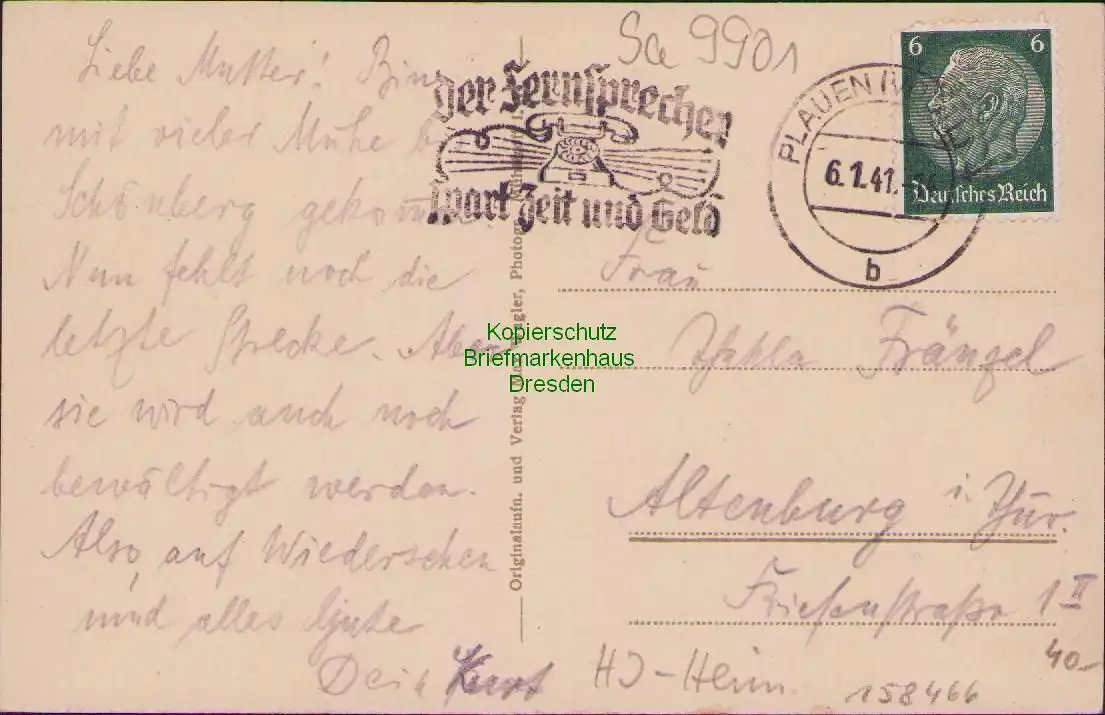 Liebe Mutter! Bin
mit vieler Mühe
Schönberg gekommen.
Nun fehlt noch die
letzte Strecke. Aber
sie wird auch noch
bewältigt werden.
Also, auf Wiedersehen
und alles Gute
Dein Kurt
Originalaufn. und Verlag Max Photogr
der Fernsprecher
spart Zeit und Geld
Sa 9901
PLAUEN (VOGTL
6.1.41.
b
6 6
Deutsches Reich
Kopierschutz
Briefmarkenhaus
Dresden
Frau
Fränzel
Altenburg i. Thür.
Friesenstraße 1 II
40-
HJ-Heim.
158466